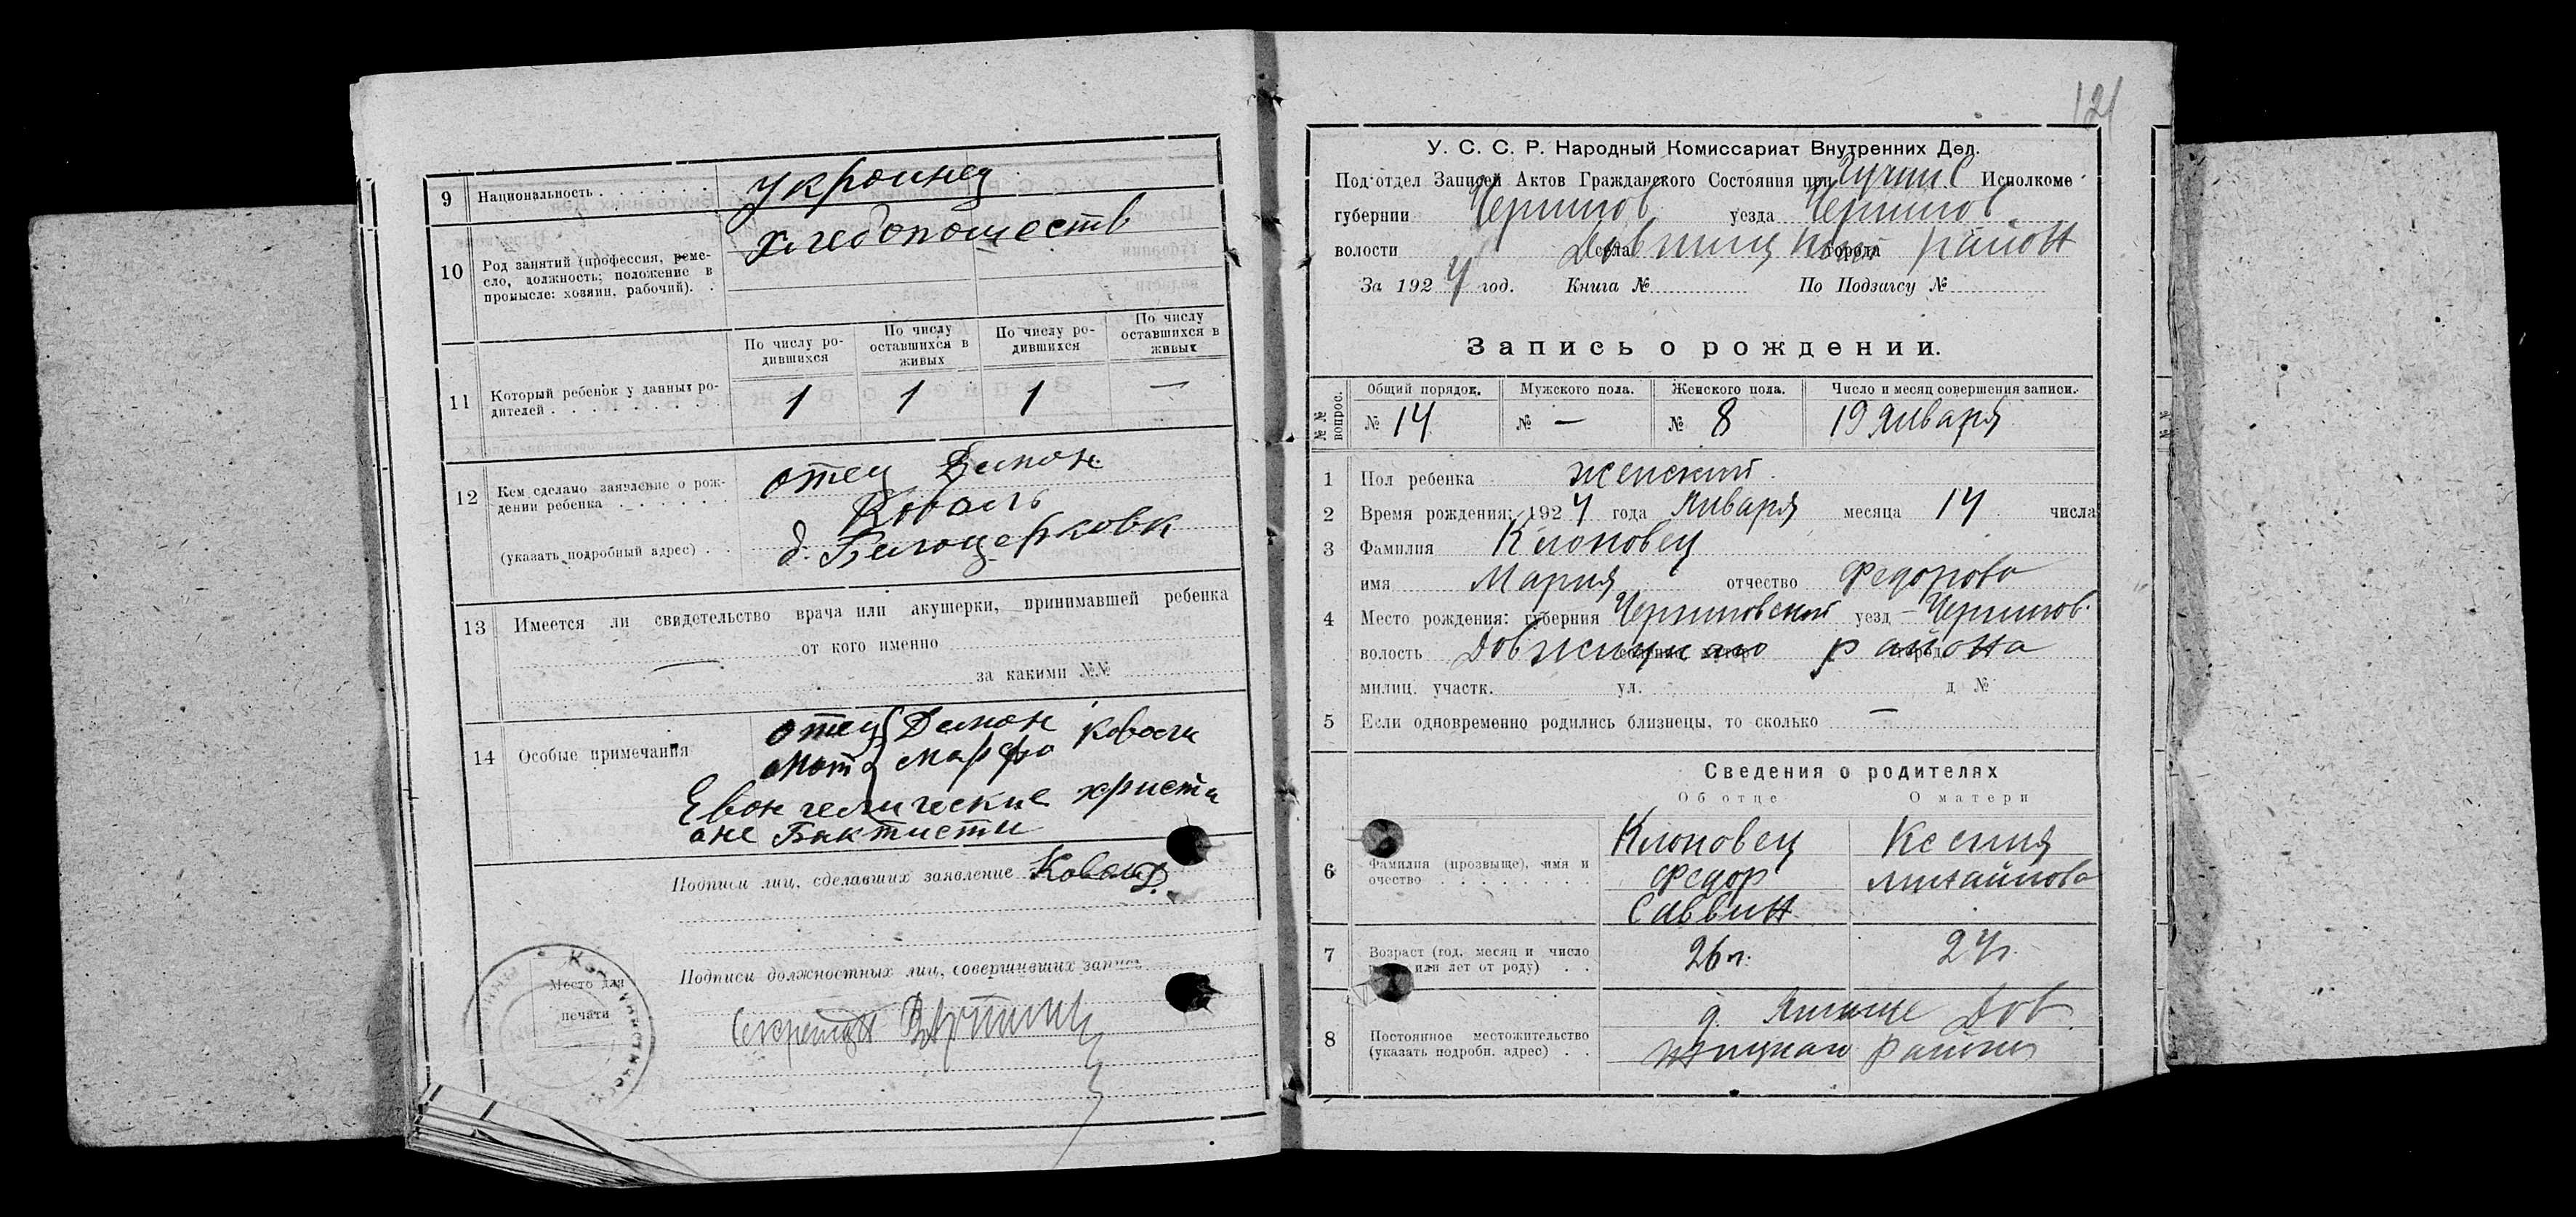 9 Национальность . . . . . . . украинец
10 Род занятий (профессия, реме-
сло, должность; положение в
промысле: хозяин, рабочий). .
По числу ро-
дившихся
По числу
оставшихся в
живых
По числу ро-
дившихся
По числу
оставшихся в
живых
11 Который ребенок у данных ро-
дителей . . . . . . . . .
1 1 1 —
12 Кем сделано заявление о рож-
дении ребенка . . . . .
отец Демон
Коваль
(указать подробный адрес) . .
д. Белоцерковк
13 Имеется ли свидетельство врача или акушерки, принимавшей ребенка
— от кого именно
за какими №№
14 Особые примечания
отец Демон Ковали
Мат Марфа
Евонгелические христи
оне Бактисти
Подписи лиц, сделавших заявление Коваль Д.
Подписи должностных лиц, совершивших запись
Место для
печати
Секретарь
121
У. С. С. Р. Народный Комиссариат Внутренних Дел.
Под'отдел Записей Актов Гражданского Состояния при Исполкоме
губернии Чернигов уезда Чернигов.
волости села города район
За 1924 год. Книга № По Подзагсу №
Запись о рождении.
№ № вопрос.
Общий порядок.
Мужского пола.
Женского пола.
Число и месяц совершения записи.
№ 14
№ —
№ 8
19 Января
1 Пол ребенка женский
2 Время рождения: 1924 года Января месяца 14 числа
3 Фамилия Клоповец
имя Мария отчество Федорова
4 Место рождения: губерния Черниговской уезд Чернигов.
волость Довжицкаго района
милиц. участк. ул. д №
5 Если одновременно родились близнецы, то сколько —
Сведения о родителях
Об отце
О матери
6 Фамилия (прозвыще), имя и
очество . . . . . . . . .
Клоповец
Федор
Саввин
Ксения
Михайлова
7 Возраст (год, месяц и число
или лет от роду) . .
26 л.
24 л.
8 Постоянное местожительство
(указать подробн. адрес) . .
д. Дов
жицкаго района